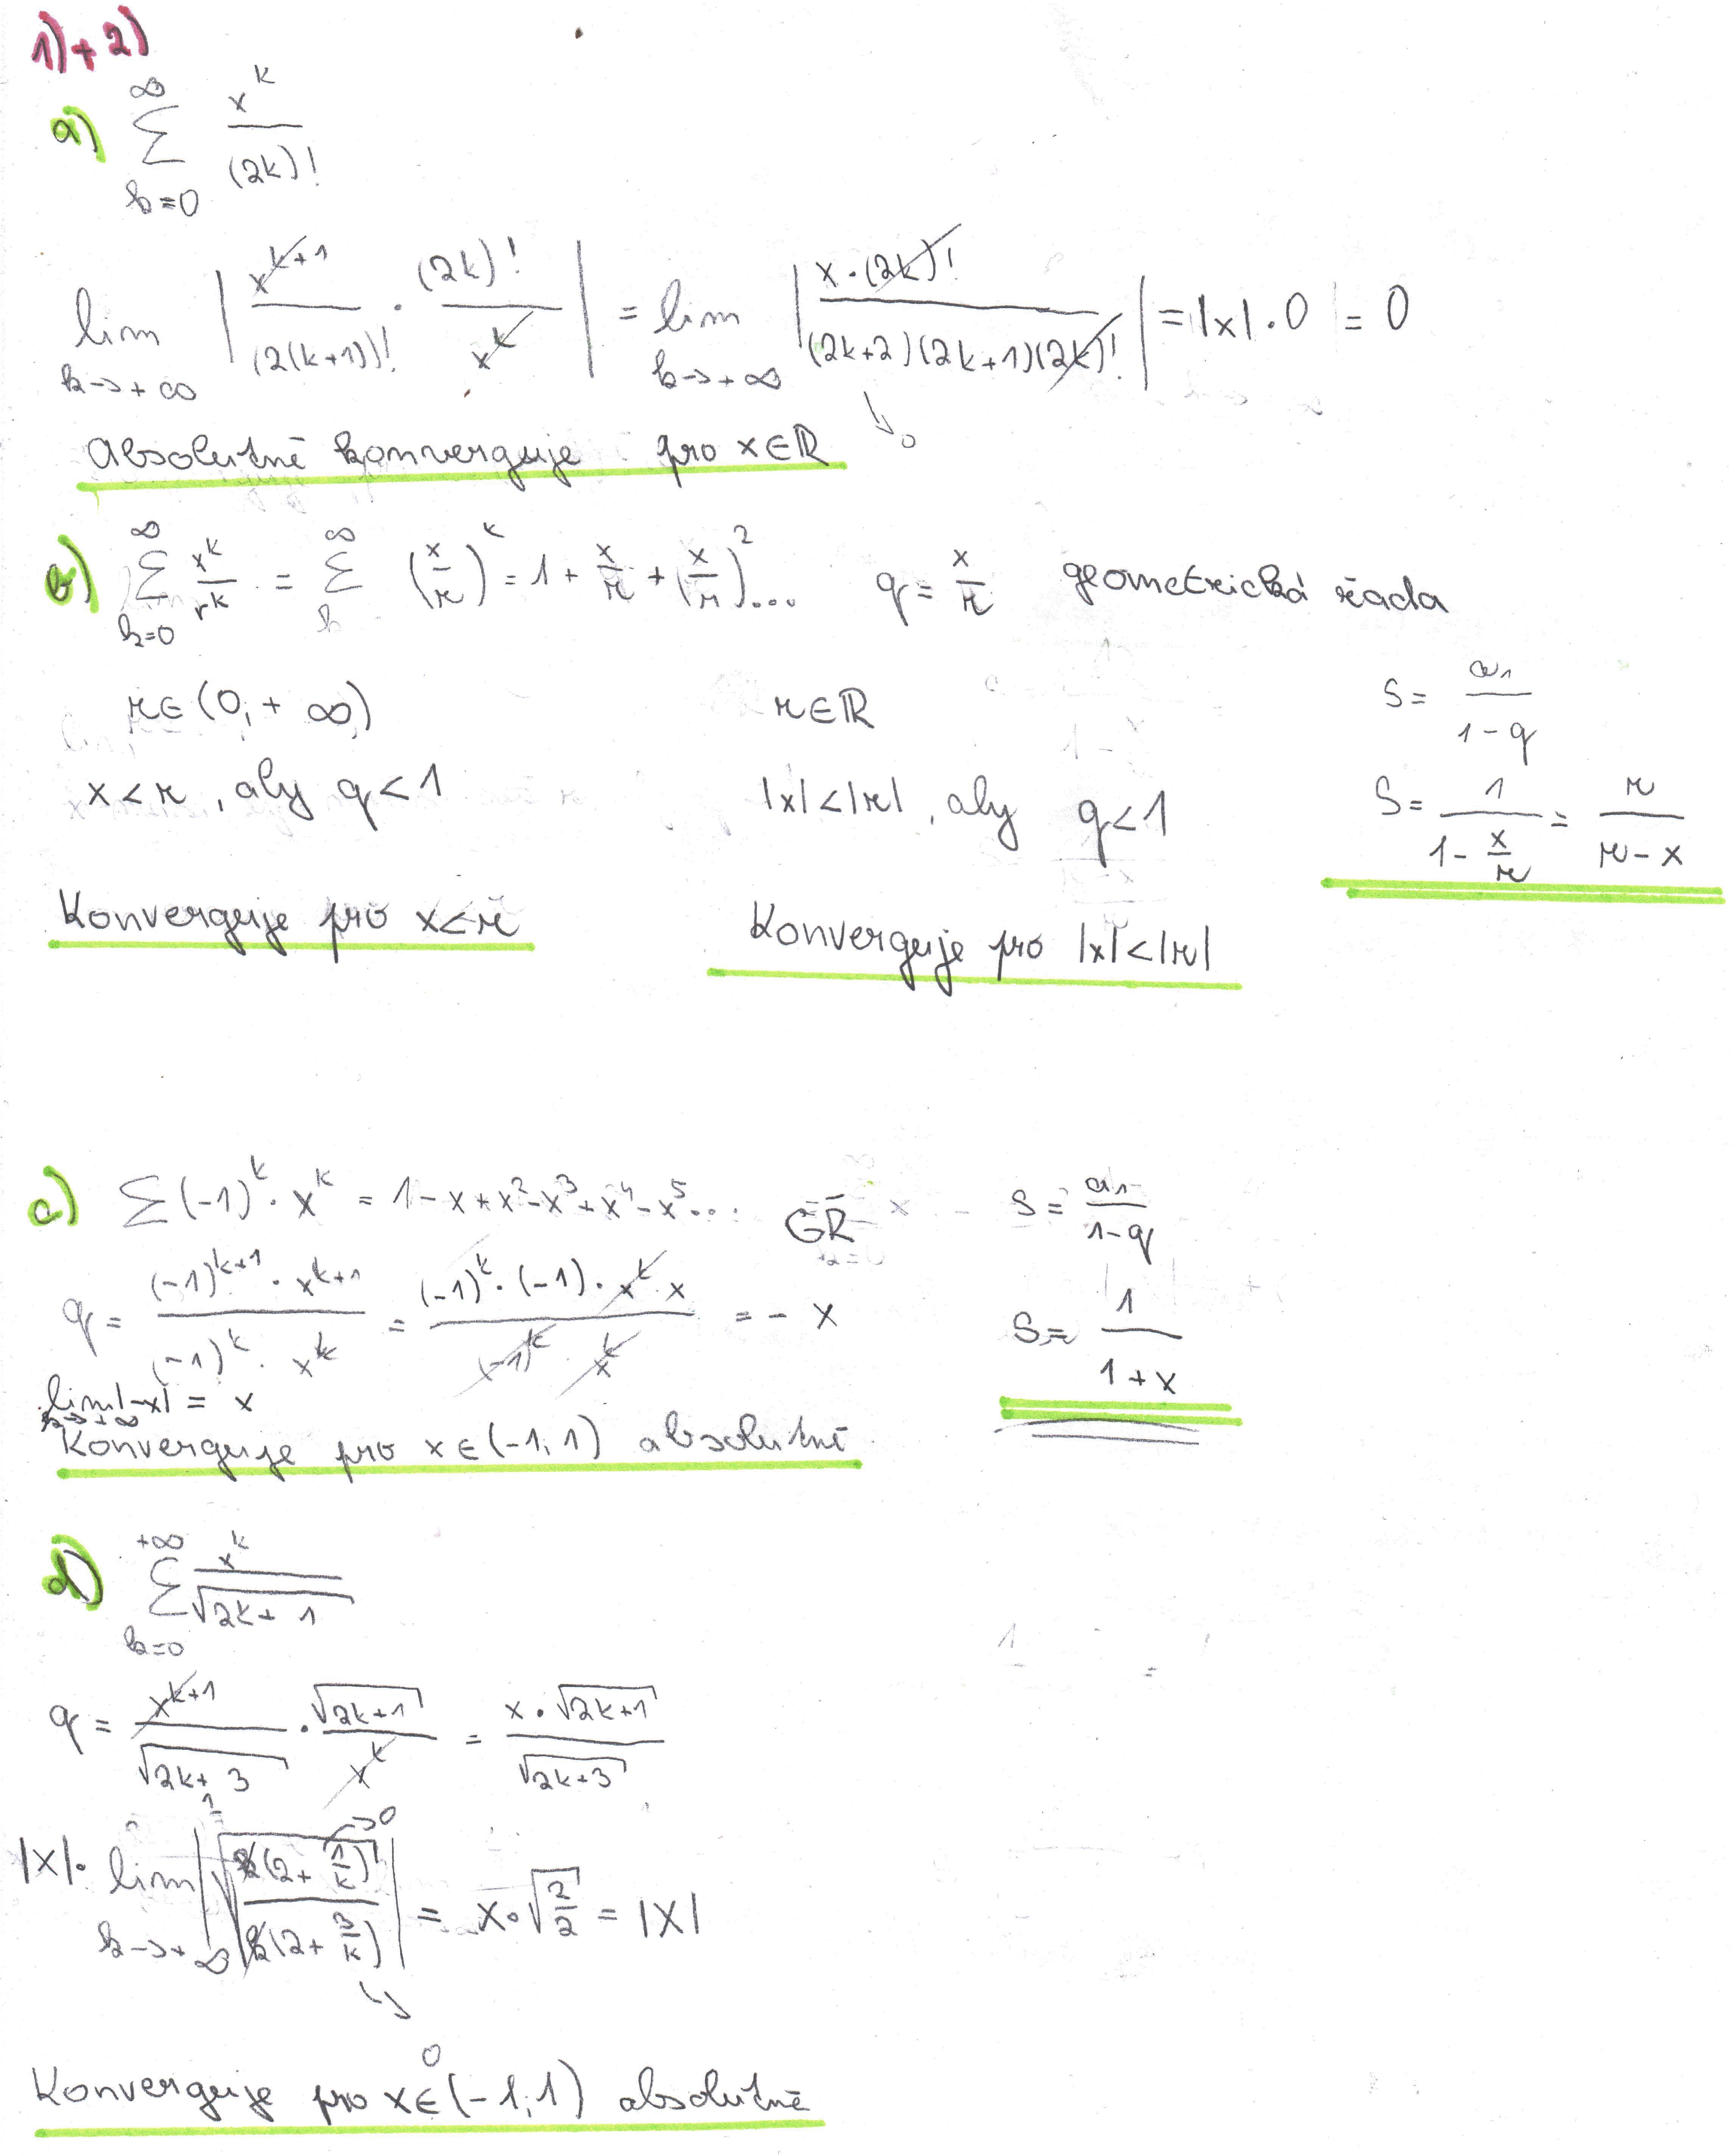 1)+2)
a) ∞ ∑ k=0 x^k / (2k)!
lim k→+∞ | x^{k+1} / (2(k+1))! · (2k)! / x^k | = lim k→+∞ | x·(2k)! / (2k+2)(2k+1)(2k)! | = |x|·0 = 0
→0
Absolutně konverguje pro x∈ℝ
b) ∞ ∑ k=0 x^k / r^k = ∞ ∑ k (x/r)^k = 1 + x/r + (x/r)^2 ... q = x/r geometrická řada
r∈(0,+∞) r∈ℝ S = a₁ / 1-q
x<r, aby q<1 |x|<|r|, aby q<1 S = 1 / 1-x/r = r / r-x
Konverguje pro x<r Konverguje pro |x|<|r|
c) ∑(-1)^k · x^k = 1-x+x²-x³+x⁴-x⁵... GŘ S = a₁ / 1-q
q = (-1)^{k+1} · x^{k+1} / (-1)^k · x^k = (-1)^k·(-1)·x^k·x / (-1)^k · x^k = -x S = 1 / 1+x
lim k→+∞ |-x| = x
Konverguje pro x∈(-1,1) absolutně
d) +∞ ∑ k=0 x^k / √2k+1
q = x^{k+1} / √2k+3 · √2k+1 / x^k = x·√2k+1 / √2k+3
|x|· lim k→+∞ | √ k(2+1/k) / k(2+3/k) | = x·√2/2 = |x|
→0
→0
Konverguje pro x∈(-1,1) absolutně